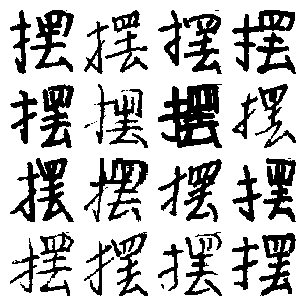 摆摆摆摆
摆摆摆摆
摆摆摆摆
摆摆摆摆